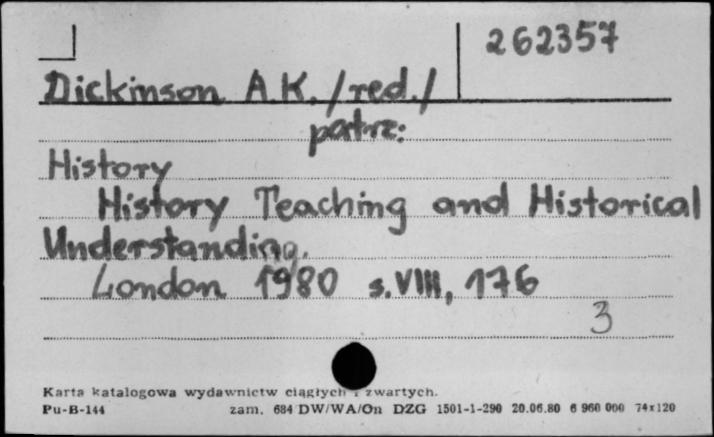 262357
Dickinson A.K. /red./
patrz:
History
History Teaching and Historical
Understanding.
London 1980 s. VIII, 176
3
Karta katalogowa wydawnictw ciągłych i zwartych.
Pu-B-144 zam. 684/DW/WA/On DZG 1501-1-290 20.06.80 6 960 000 74x120